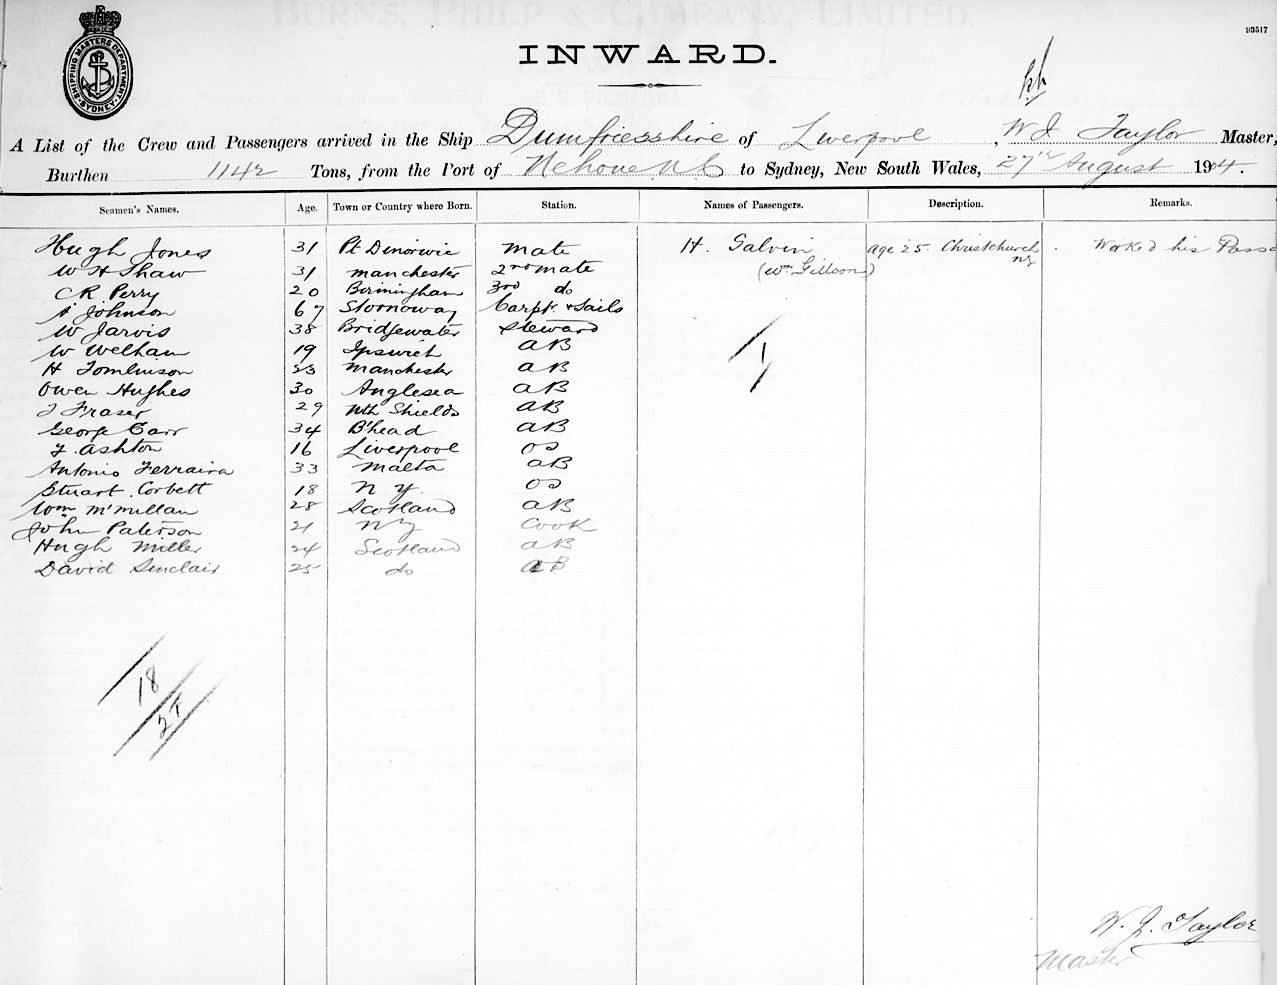 93517
SHIPPING MASTERS DEPARTMENT SYDNEY
INWARD.
A List of the Crew and Passengers arrived in the Ship Dumfriesshire of Liverpool, W J Taylor Master,
Burthen 1142 Tons, from the Port of Nehoue N C to Sydney, New South Wales, 27th August 1904.
Seamen's Names. Age. Town or Country where Born. Station. Names of Passengers. Description. Remarks.
Hugh Jones 31 Pt Dinorwic Mate H. Galvin age 25. Christchurch Worked his Passa
W H Shaw 31 Manchester 2nd mate (Wm Gilloon) NZ
C R Perry 20 Birmingham 3rd do
A Johnson 67 Stornoway Carptr & Sails
W Jarvis 38 Bridgewater Steward
W Welham 19 Ipswich AB
H Tomlinson 23 Manchester AB
Owen Hughes 30 Anglesea AB
J Fraser 29 Nth Shields AB
George Carr 34 B'head AB
F. Ashton 16 Liverpool OS
Antonio Ferraira 33 Malta AB
Stuart Corbett 18 N Y. OS
Wm McMillan 28 Scotland AB
John Paterson 21 N Y Cook
Hugh Miller 24 Scotland AB
David Sinclair 25 do AB
1
18
W. J. Taylor
Master